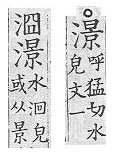 ○澋呼猛切水
皃文一
澋水洄皃
或从景